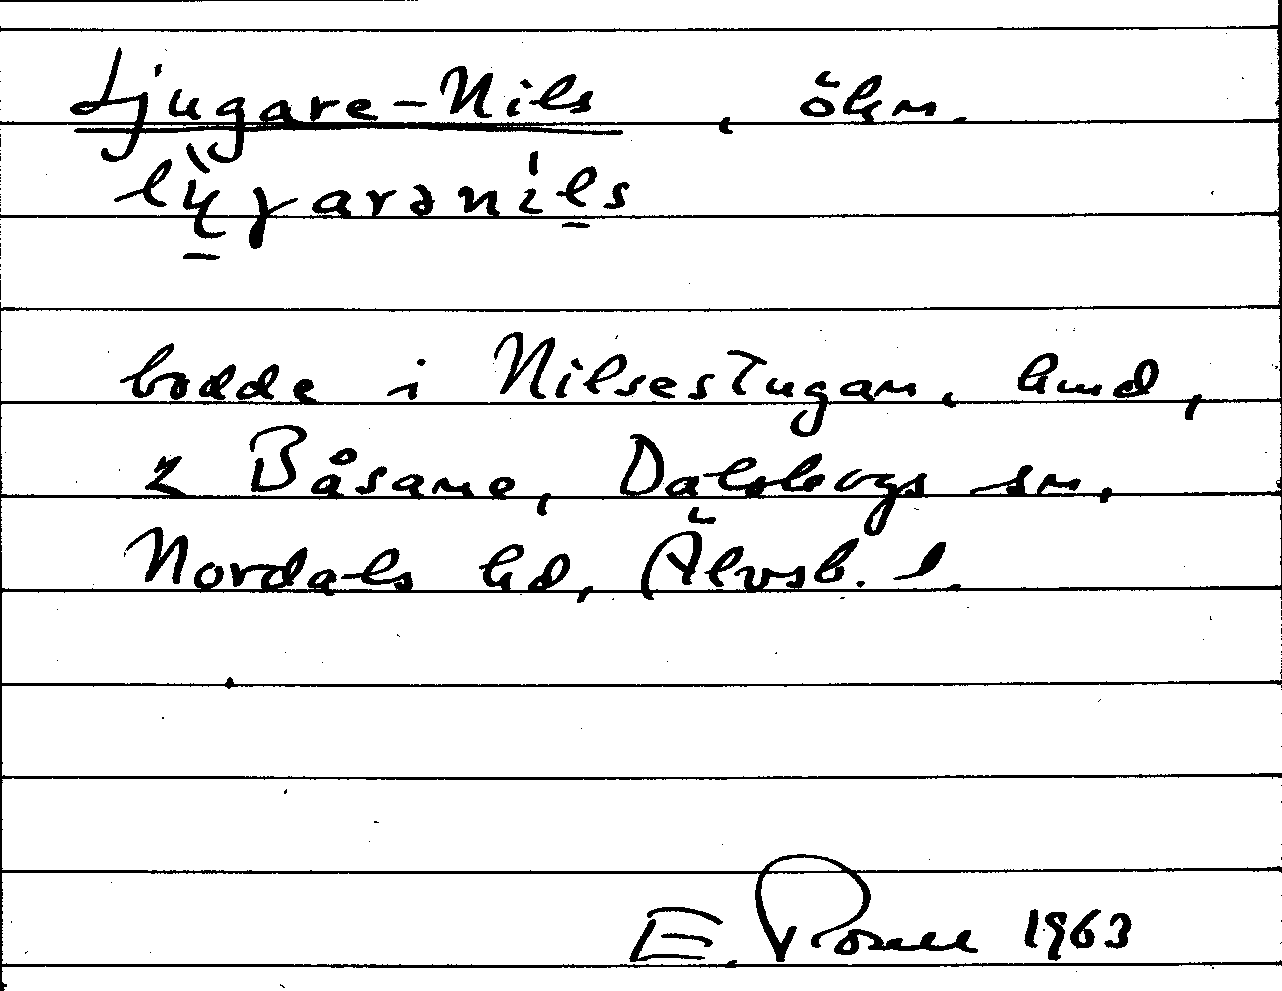 Ljugare-Nils, ökn.
lỳɣarənìls
bodde i Nilsestugan, hmd,
t Båsane, Dalskogs sn,
Nordals hd, Älvsb. l.
E. 1963